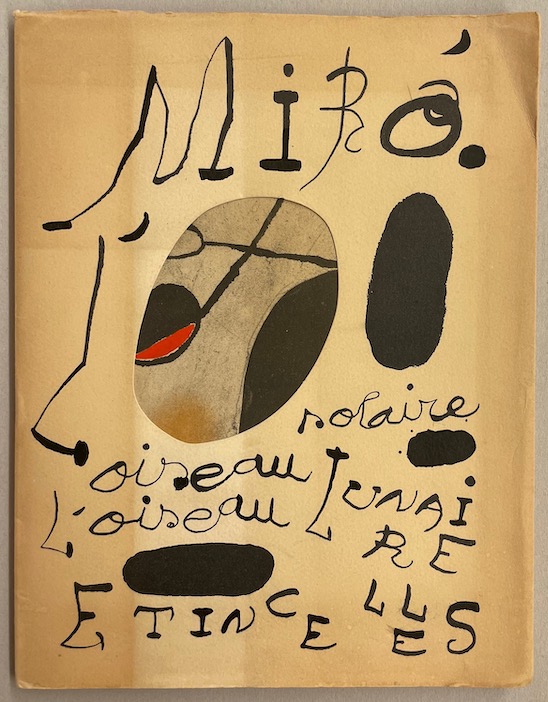 Miró.
L'oiseau solaire
L'oiseau LUNAIRE
ETINCELLES